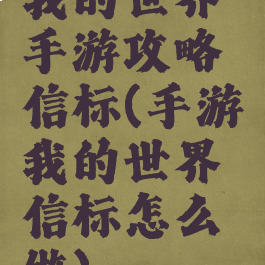 我的世界
手游攻略
信标(手游
我的世界
信标怎么
做)